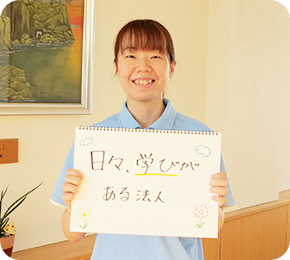 日々、学びが
ある法人